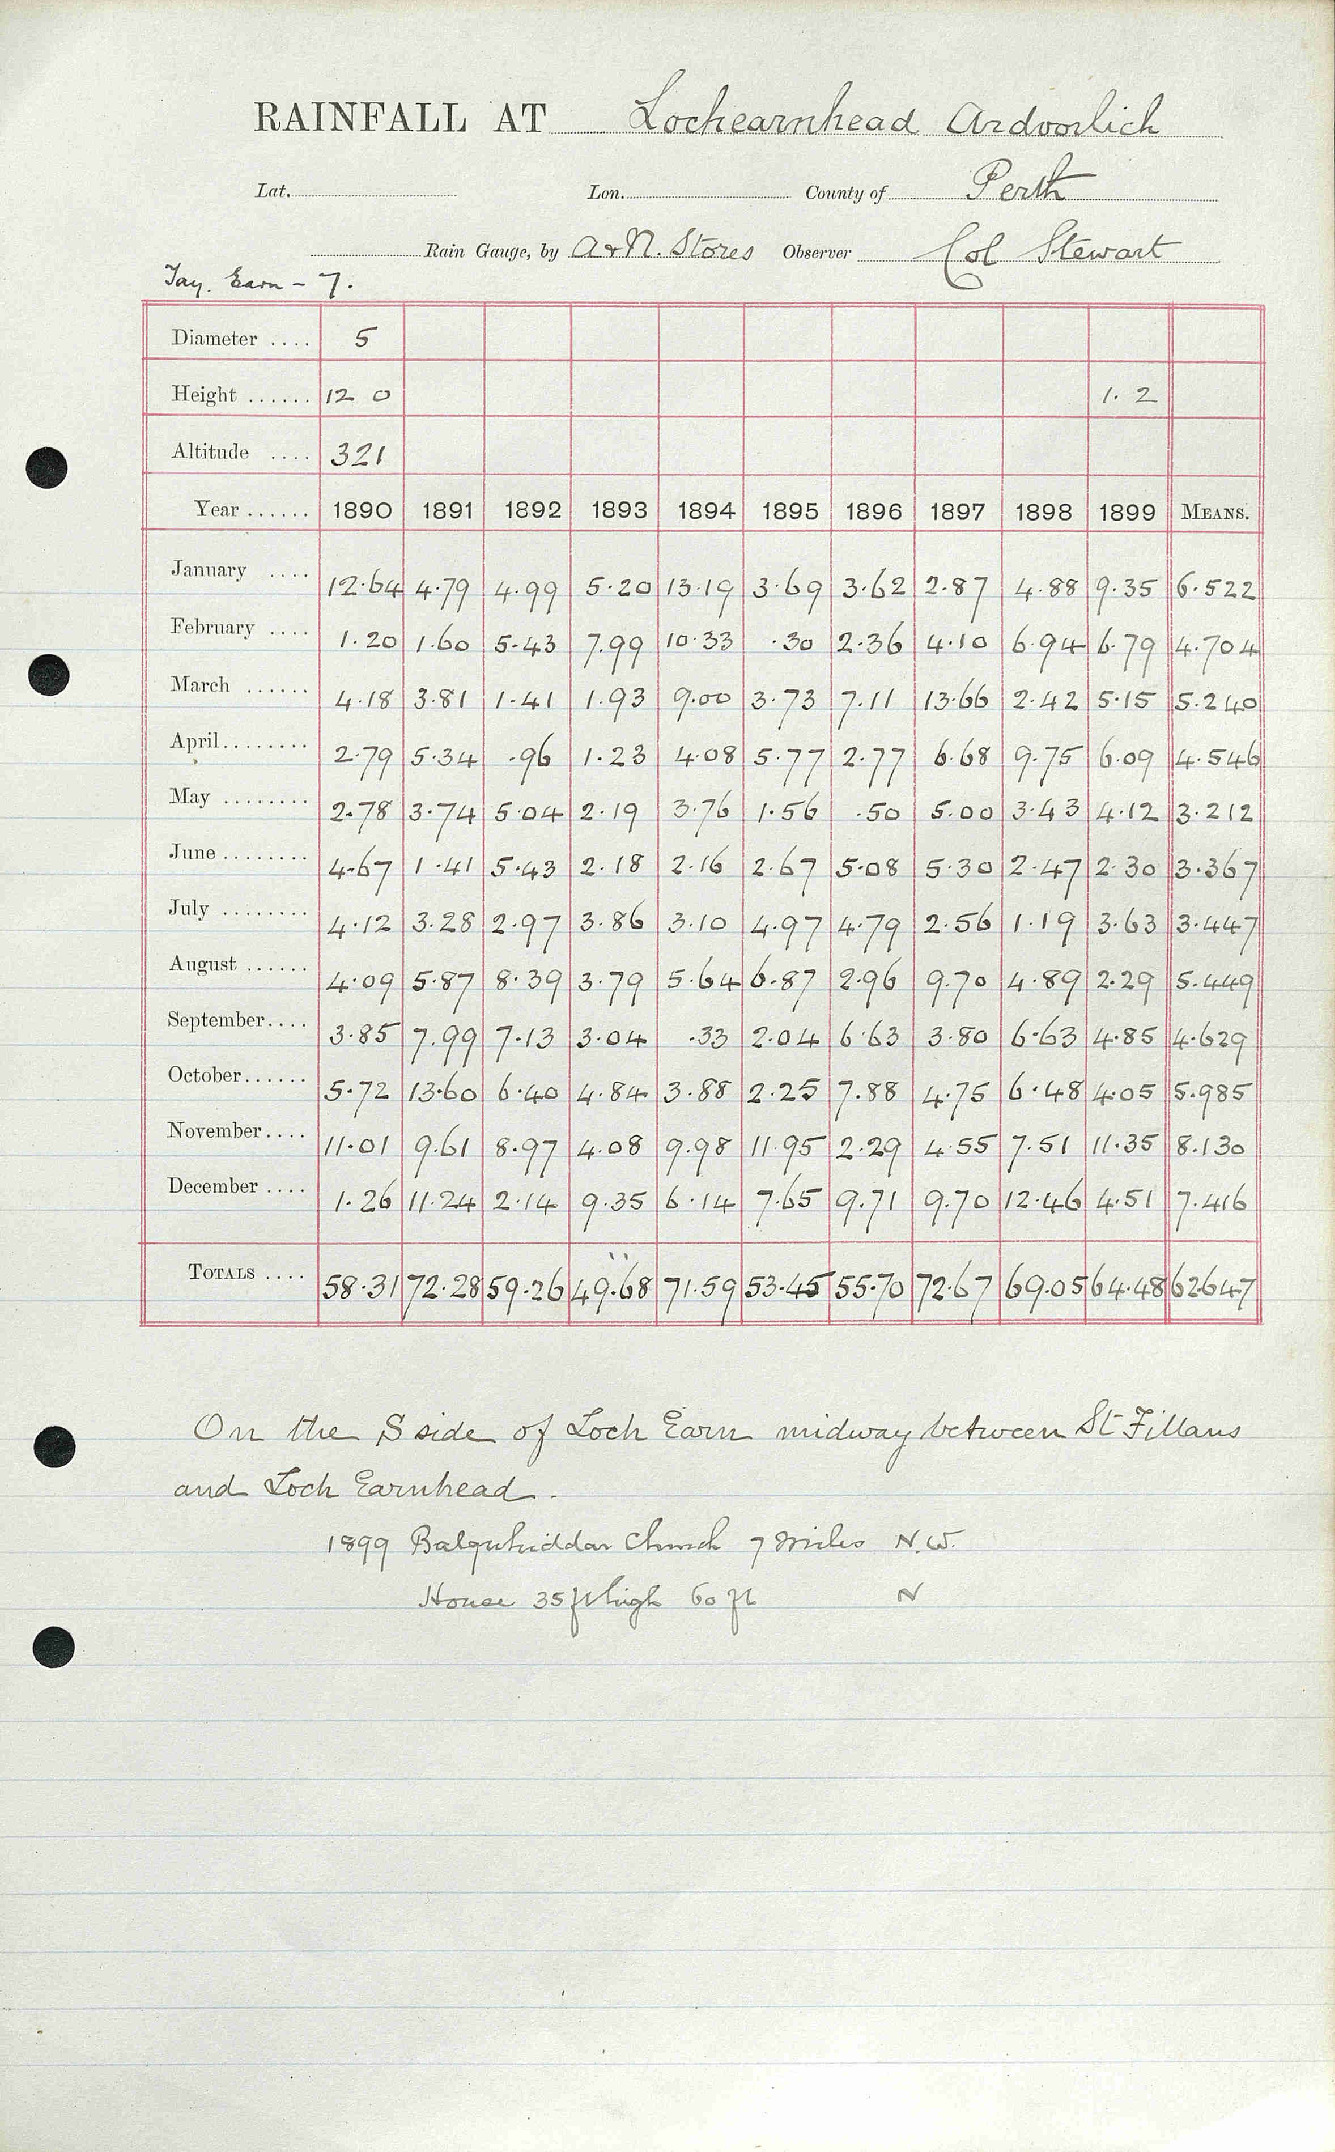 RAINFALL AT Lochearnhead Ardvorlich
Lat. Lon. County of Perth
Rain Gauge, by A & N. Stores Observer Col Stewart
Tay. Earn - 7.
Diameter .... 5
Height ...... 12 0 1. 2
Altitude .... 321
Year ...... 1890 1891 1892 1893 1894 1895 1896 1897 1898 1899 MEANS.
January .... 12.64 4.79 4.99 5.20 13.19 3.69 3.62 2.87 4.88 9.35 6.522
February .... 1.20 1.60 5.43 7.99 10.33 .30 2.36 4.10 6.94 6.79 4.704
March ...... 4.18 3.81 1.41 1.93 9.00 3.73 7.11 13.66 2.42 5.15 5.240
April........ 2.79 5.34 .96 1.23 4.08 5.77 2.77 6.68 9.75 6.09 4.546
May ........ 2.78 3.74 5.04 2.19 3.76 1.56 .50 5.00 3.43 4.12 3.212
June ........ 4.67 1.41 5.43 2.18 2.16 2.67 5.08 5.30 2.47 2.30 3.367
July ........ 4.12 3.28 2.97 3.86 3.10 4.97 4.79 2.56 1.19 3.63 3.447
August ...... 4.09 5.87 8.39 3.79 5.64 6.87 2.96 9.70 4.89 2.29 5.449
September.... 3.85 7.99 7.13 3.04 .33 2.04 6.63 3.80 6.63 4.85 4.629
October...... 5.72 13.60 6.40 4.84 3.88 2.25 7.88 4.75 6.48 4.05 5.985
November.... 11.01 9.61 8.97 4.08 9.98 11.95 2.29 4.55 7.51 11.35 8.130
December .... 1.26 11.24 2.14 9.35 6.14 7.65 9.71 9.70 12.46 4.51 7.416
TOTALS .... 58.31 72.28 59.26 49.68 71.59 53.45 55.70 72.67 69.05 64.48 62.647
On the S side of Loch Earn midway between St Fillans
and Loch Earnhead.
1899 Balquhiddar Church 7 miles N.W.
House 35 ft high 60 ft N